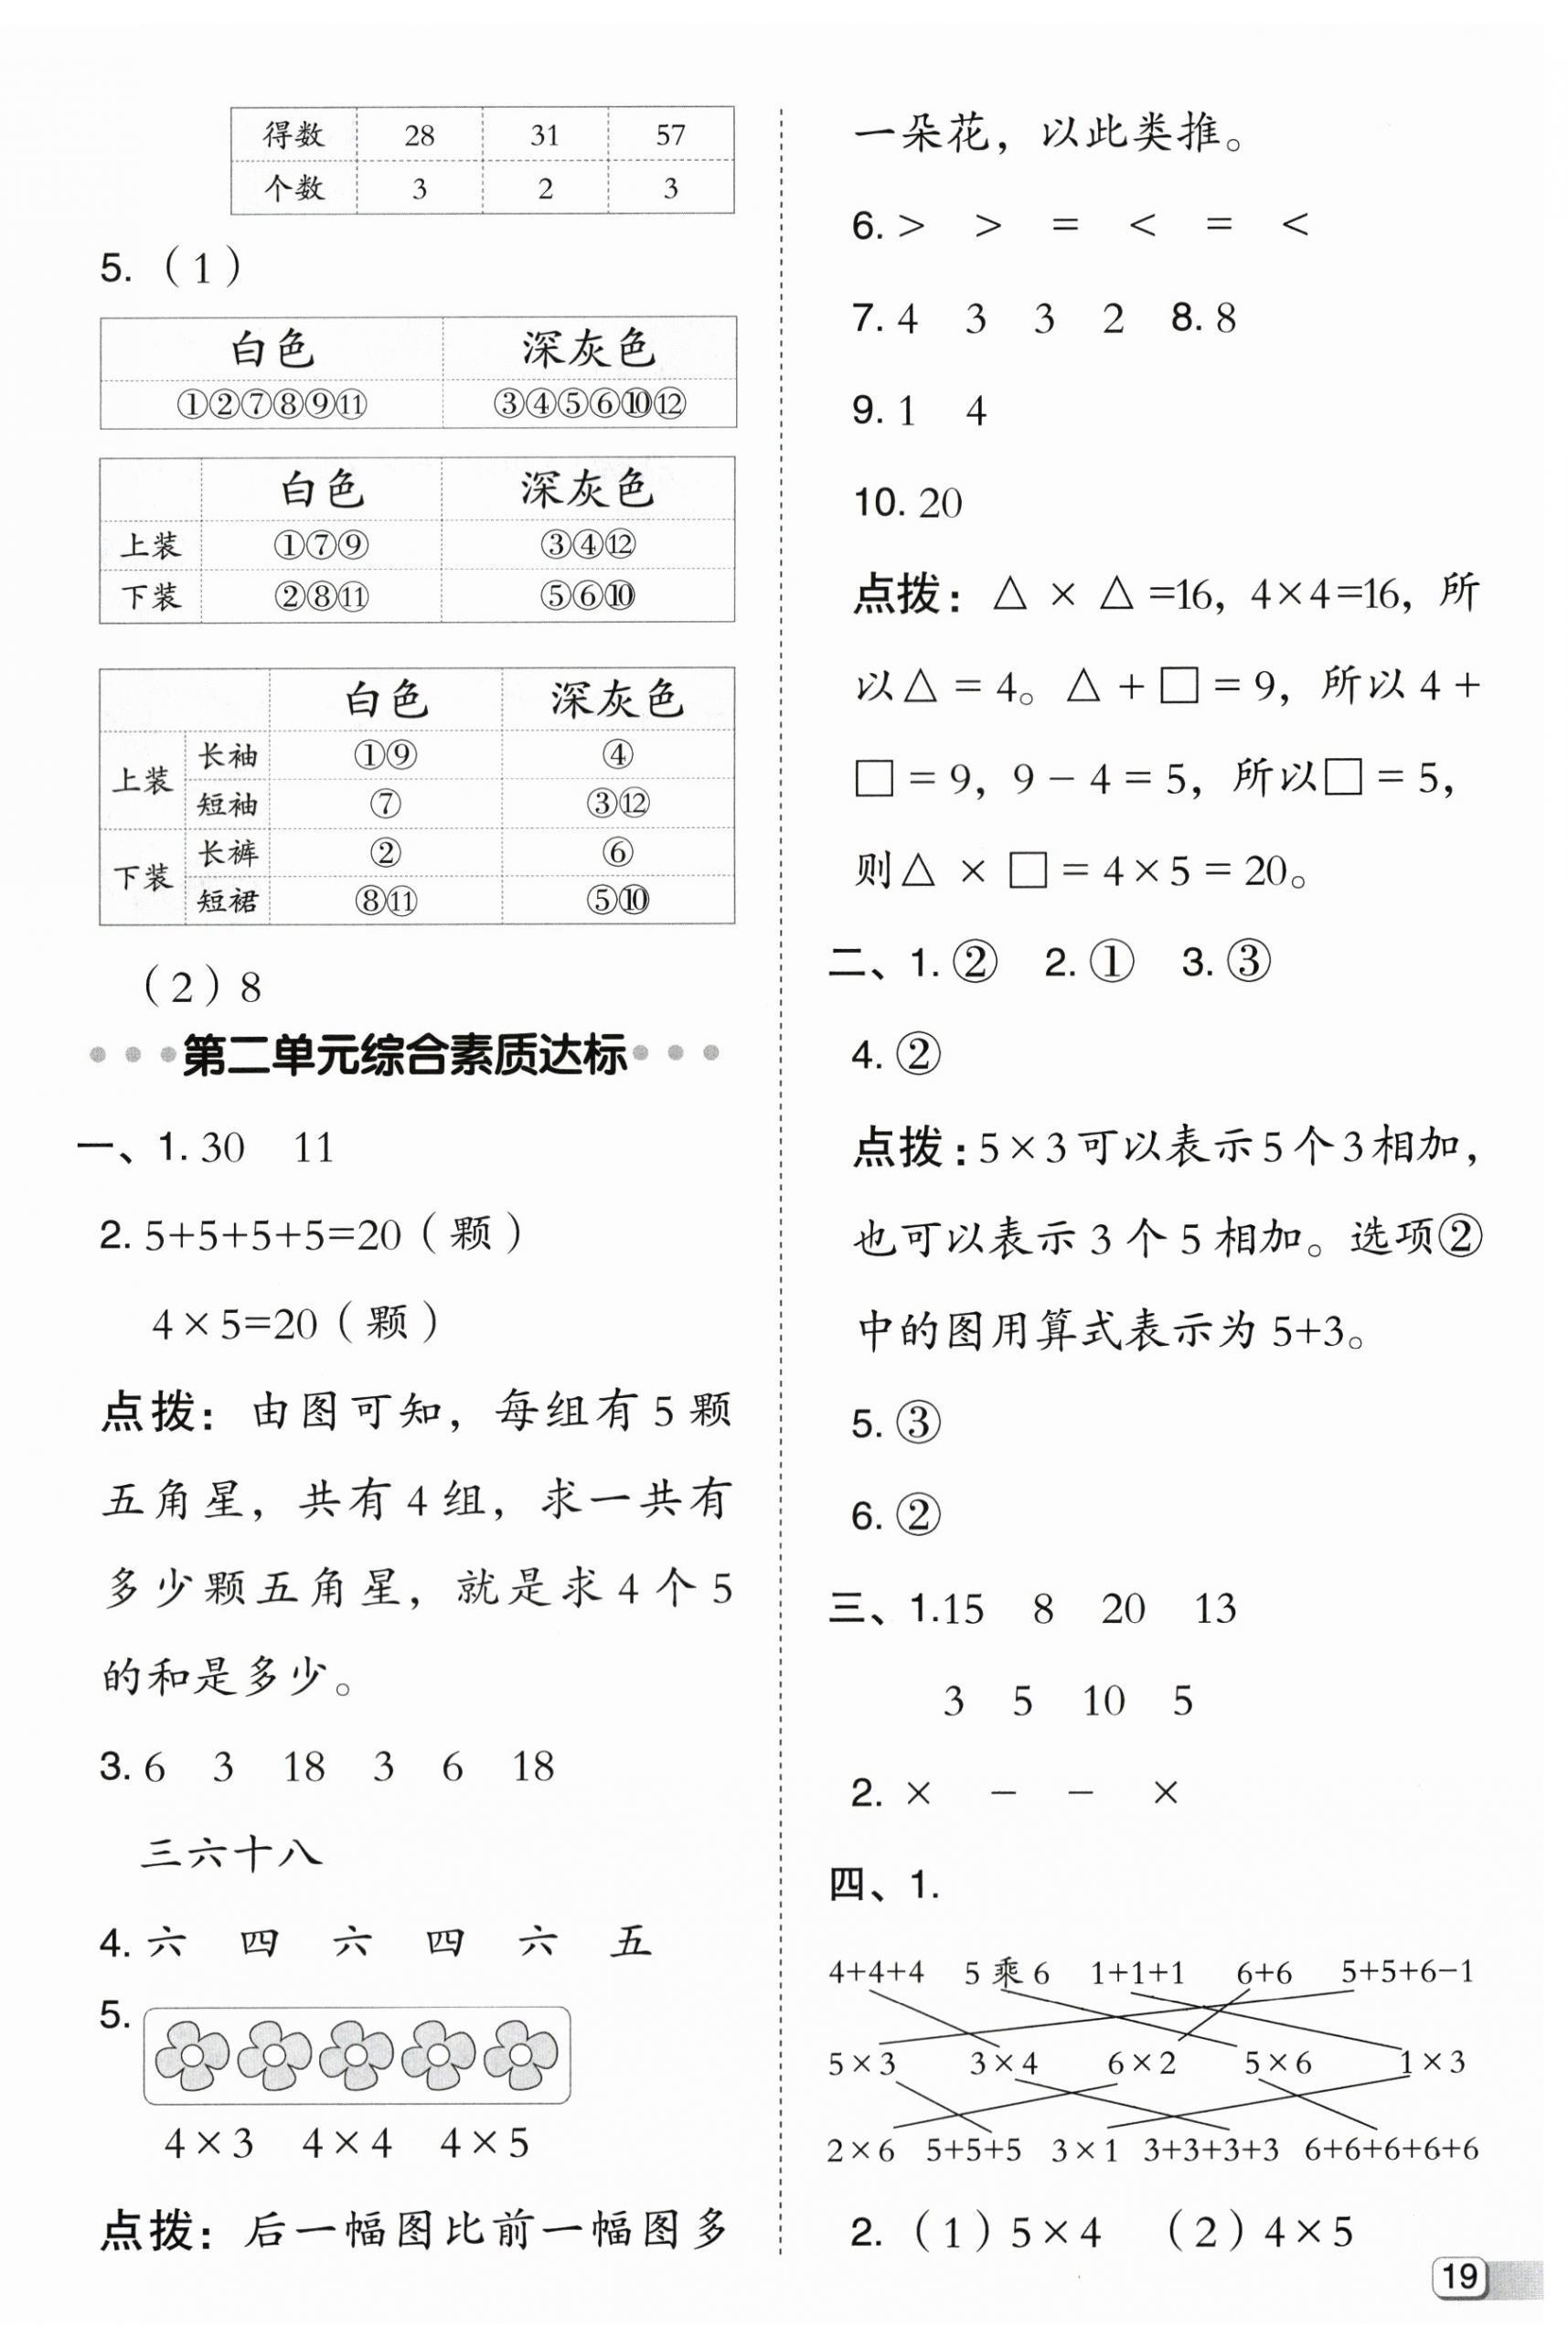 得数 28 31 57
个数 3 2 3
5.（1）
白色 深灰色
①②⑦⑧⑨⑪ ③④⑤⑥⑩⑫
白色 深灰色
上装 ①⑦⑨ ③④⑫
下装 ②⑧⑪ ⑤⑥⑩
白色 深灰色
上装 长袖 ①⑨ ④
短袖 ⑦ ③⑫
下装 长裤 ② ⑥
短裙 ⑧⑪ ⑤⑩
（2）8
第二单元综合素质达标
一、1. 30 11
2. 5+5+5+5=20（颗）
4×5=20（颗）
点拨：由图可知，每组有5颗
五角星，共有4组，求一共有
多少颗五角星，就是求4个5
的和是多少。
3. 6 3 18 3 6 18
三六十八
4. 六 四 六 四 六 五
5.
4×3 4×4 4×5
点拨：后一幅图比前一幅图多
一朵花，以此类推。
6. > > = < = <
7. 4 3 3 2 8. 8
9. 1 4
10. 20
点拨：△×△=16，4×4=16，所
以△=4。△+□=9，所以4+
□=9，9-4=5，所以□=5，
则△×□=4×5=20。
二、1. ② 2. ① 3. ③
4. ②
点拨：5×3可以表示5个3相加，
也可以表示3个5相加。选项②
中的图用算式表示为5+3。
5. ③
6. ②
三、1. 15 8 20 13
3 5 10 5
2. × − − ×
四、1.
4+4+4 5乘6 1+1+1 6+6 5+5+6−1
5×3 3×4 6×2 5×6 1×3
2×6 5+5+5 3×1 3+3+3+3 6+6+6+6+6
2.（1）5×4 （2）4×5
19